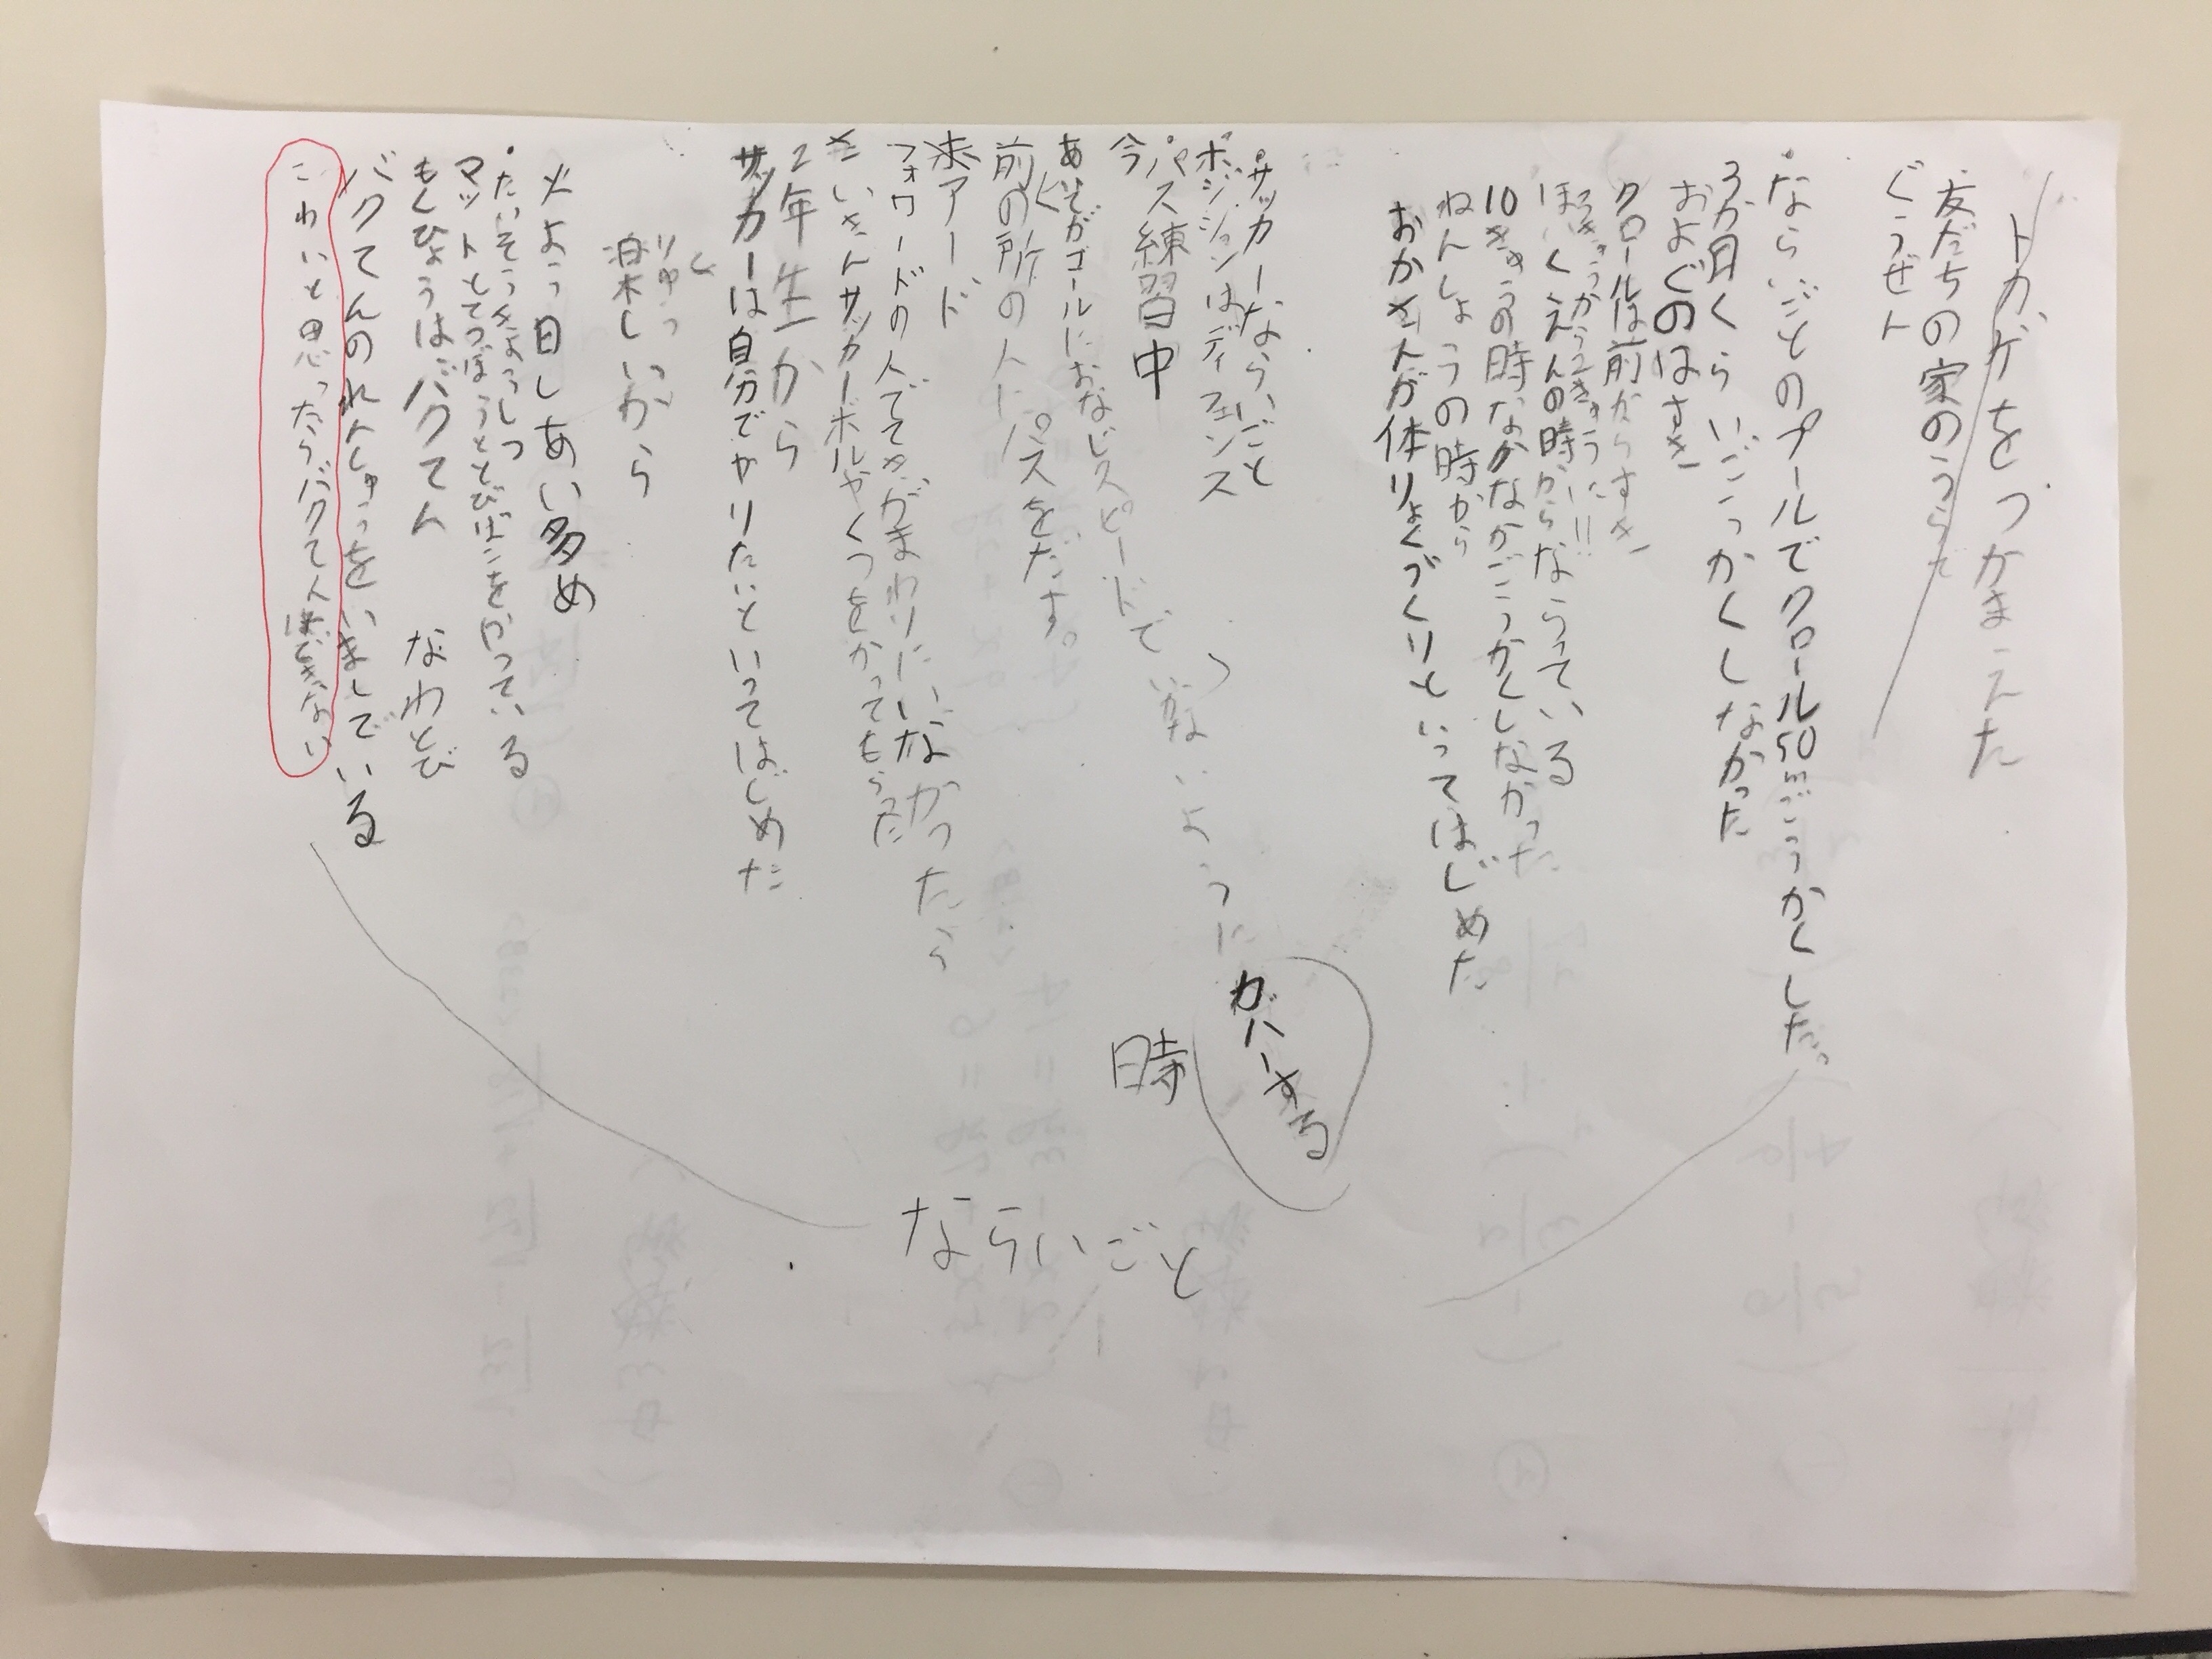 トカゲをつかまえた
友だちの家のうらで
ぐうぜん
ならいごとのプールでクロール50mごうかくした。
3か月くらいごうかくしなかった
およぐのはすき
クロールは前からすき
ほくえんの時からならっている
10きゅうの時なかなかごうかくしなかった
ねんしょうの時から
おかさんが体りょくづくりといってはじめた
サッカーならいごと
ポジションはディフェンス
パス練習中
今
あいてがゴールにおなじスピードで いかないように
ガバーする
時
前の所の人にパスをだす。
フォワードの人でてきがまわりにいなかったら
さいきんサッカーボルやくつをかってもらった
2年生から
サッカーは自分でやりたいといってはじめだ
りゆう
楽しいから
火よう日しあい多め
たいそうきょうしつ
マットとてつぼうととびばこをやっている
もくひょうはバクてん なわとび
バクてんのれんしゅうをいましでいる
こわいと思ったらバクてんはできない
ならいごと